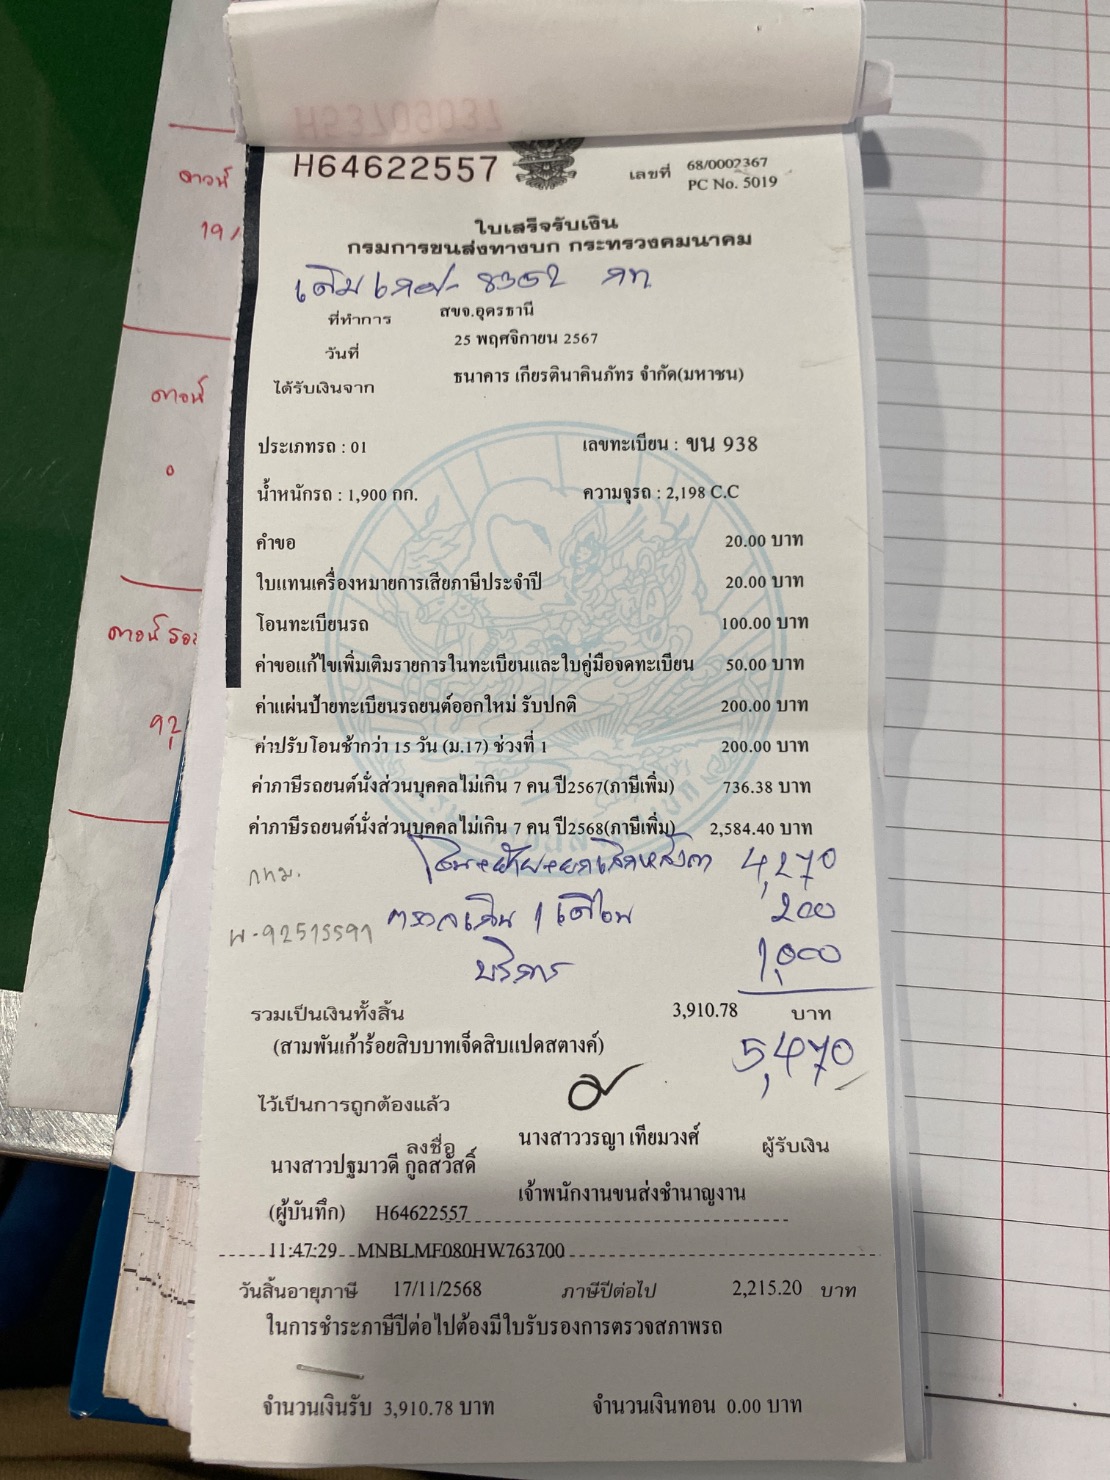 H64622557
เลขที่ 68/0002367
PC No. 5019
ใบเสร็จรับเงิน
กรมการขนส่งทางบก กระทรวงคมนาคม
8352 กท
ที่ทำการ สขจ.อุดรธานี
วันที่ 25 พฤศจิกายน 2567
ได้รับเงินจาก ธนาคาร เกียรตินาคินภัทร จำกัด(มหาชน)
ประเภทรถ : 01 เลขทะเบียน : ขน 938
น้ำหนักรถ : 1,900 กก. ความจุรถ : 2,198 C.C
คำขอ 20.00 บาท
ใบแทนเครื่องหมายการเสียภาษีประจำปี 20.00 บาท
โอนทะเบียนรถ 100.00 บาท
ค่าขอแก้ไขเพิ่มเติมรายการในทะเบียนและใบคู่มือจดทะเบียน 50.00 บาท
ค่าแผ่นป้ายทะเบียนรถยนต์ออกใหม่ รับปกติ 200.00 บาท
ค่าปรับโอนช้ากว่า 15 วัน (ม.17) ช่วงที่ 1 200.00 บาท
ค่าภาษีรถยนต์นั่งส่วนบุคคลไม่เกิน 7 คน ปี2567(ภาษีเพิ่ม) 736.38 บาท
ค่าภาษีรถยนต์นั่งส่วนบุคคลไม่เกิน 7 คน ปี2568(ภาษีเพิ่ม) 2,584.40 บาท
4,270
กทม.
200
บริการ 1,000
รวมเป็นเงินทั้งสิ้น 3,910.78 บาท
(สามพันเก้าร้อยสิบบาทเจ็ดสิบแปดสตางค์) 5,470
ไว้เป็นการถูกต้องแล้ว
ลงชื่อ นางสาววรญา เทียมวงศ์ ผู้รับเงิน
นางสาวปฐมาวดี กูลสวัสดิ์
เจ้าพนักงานขนส่งชำนาญงาน
(ผู้บันทึก) H64622557
11:47:29 MNBLMF080HW763700
วันสิ้นอายุภาษี 17/11/2568 ภาษีปีต่อไป 2,215.20 บาท
ในการชำระภาษีปีต่อไปต้องมีใบรับรองการตรวจสภาพรถ
จำนวนเงินรับ 3,910.78 บาท จำนวนเงินทอน 0.00 บาท